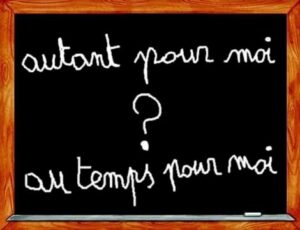 autant pour moi
?
au temps pour moi